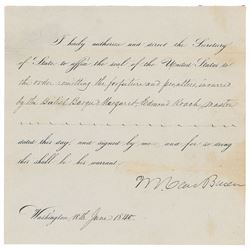 I hereby authorize and direct the Secretary
of State to affix the seal of the United States to
the order remitting the forfeiture and penalties, incurred
by the British Barque Margaret, Edmund Roach, master
dated this day, and signed by me and for so doing
this shall be his warrant.
M Van Buren
Washington, 18th June 1840.